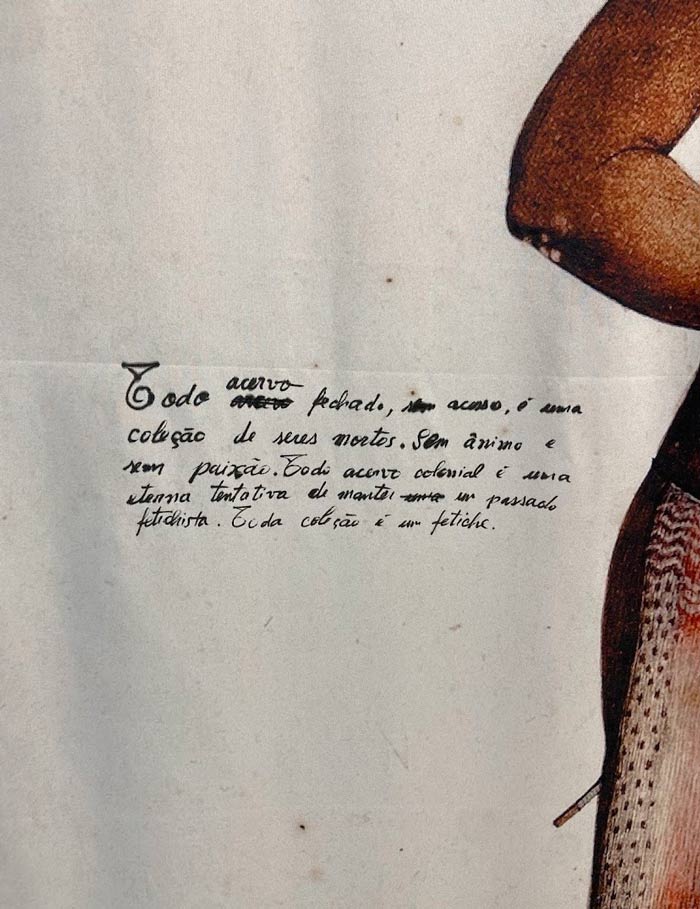 Todo acervo fechado, sem acesso, é uma
coleção de seres mortos. Sem ânimo e
sem paixão. Todo acervo colonial é uma
eterna tentativa de manter um passado
fetichista. Toda coleção é um fetiche.